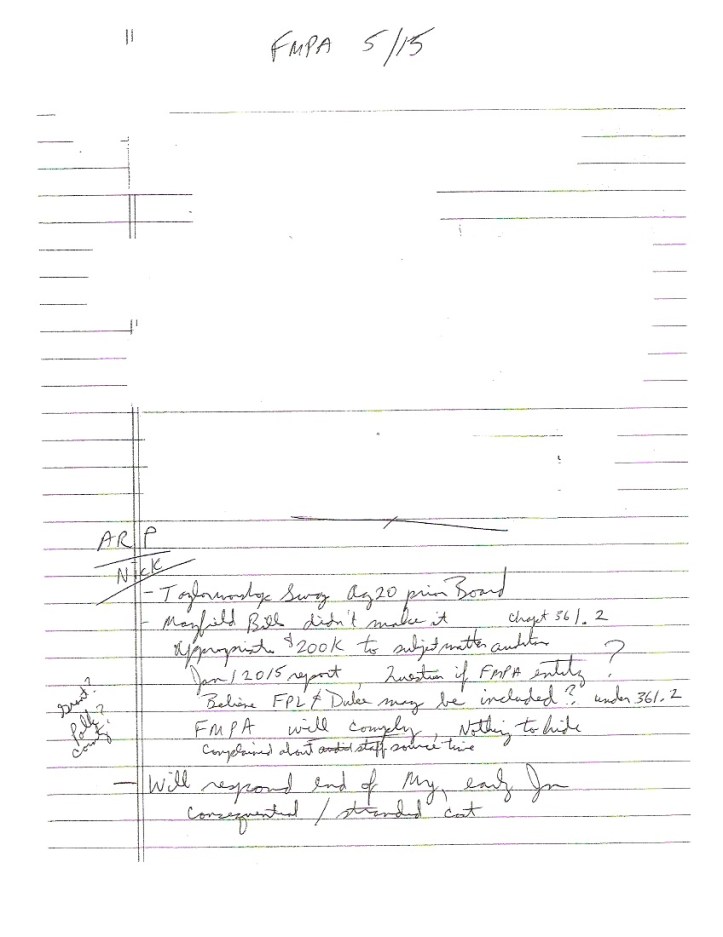 FMPA 5/15
ARP
Nick
- Aug 20 Board
- Mayfield Bill didn't make it chapt 361.2
Appropriate $200K to subject matter auditor
Jan 1 2015 report, Question if FMPA entity ?
Believe FPL & Duke may be included ? under 361.2
FMPA will comply, Nothing to hide
Complained about staff source time
County?
— Will respond end of My, early Jn
Consequential / stranded cost